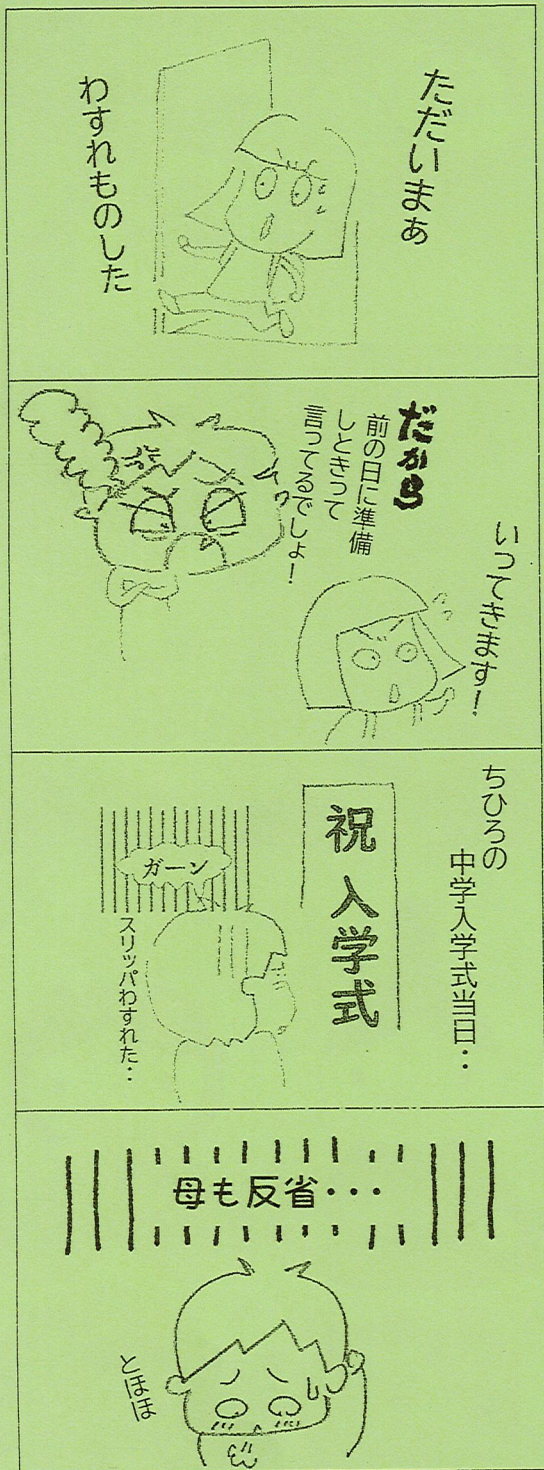 ただいまぁ
わすれものした
いってきます！
だから
前の日に準備
しときって
言ってるでしょ！
ちひろの
中学入学式当日・・
祝 入学式
ガーン
スリッパわすれた・・
母も反省・・・
とほほ